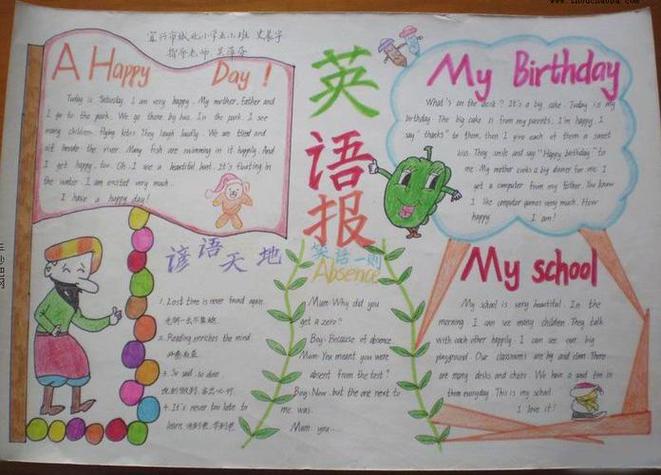 宜兴市城北小学五
指导老师
A Happy Day!
Today is Saturday. I am very happy. My mother, father and
I go to the park. We go there by bus. In the park, I see
many children flying kites. They laugh loudly. We are tired and
sit beside the river. Many fish are swimming in it happily. And
I get happy, too. Oh, I see a beautiful boat. It's floating in
the water. I am excited very much.
I have a happy day!
英语报
My Birthday
What's on the desk? It's a big cake. Today is my
birthday. The big cake is from my parents. I'm happy. I
say "thanks" to them, then I give each of them a sweet
kiss. They smile and say "Happy birthday" to
me. My mother cooks a big dinner for me. I
get a computer from my father. You know
I like computer games very much. How
happy I am!
谚语天地
1. Lost time is never found again.
2. Reading enriches the mind.
3. So said, so done.
4. It's never too late to
learn.
笑话一则
Absence
Mum: Why did you
get a zero?
Boy: Because of absence.
Mum: You meant you were
absent from the test?
Boy: Now, but the one next to
me was.
Mum: you...
My school
My school is very beautiful. In the
morning, I can see many children. They talk
with each other happily. I can see our big
playground. Our classroom are big and clean. There
are many desks and chairs. We have a
them everyday. This is my school.
I love it!